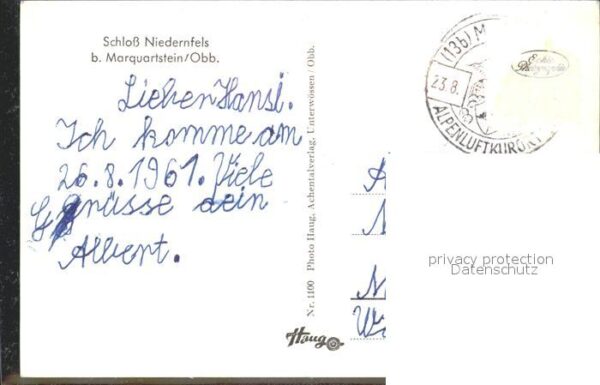 Schloß Niedernfels
b. Marquartstein/Obb.
Lieben Hansl.
Ich komme am
26.8.1961. Viele
Grüsse dein
Albert.
Nr. 1100 Photo Haug, Achentalverlag, Unterwössen / Obb.
Haug
(13b) M
23.8.
ALPENLUFTKURORT
privacy protection
Datenschutz